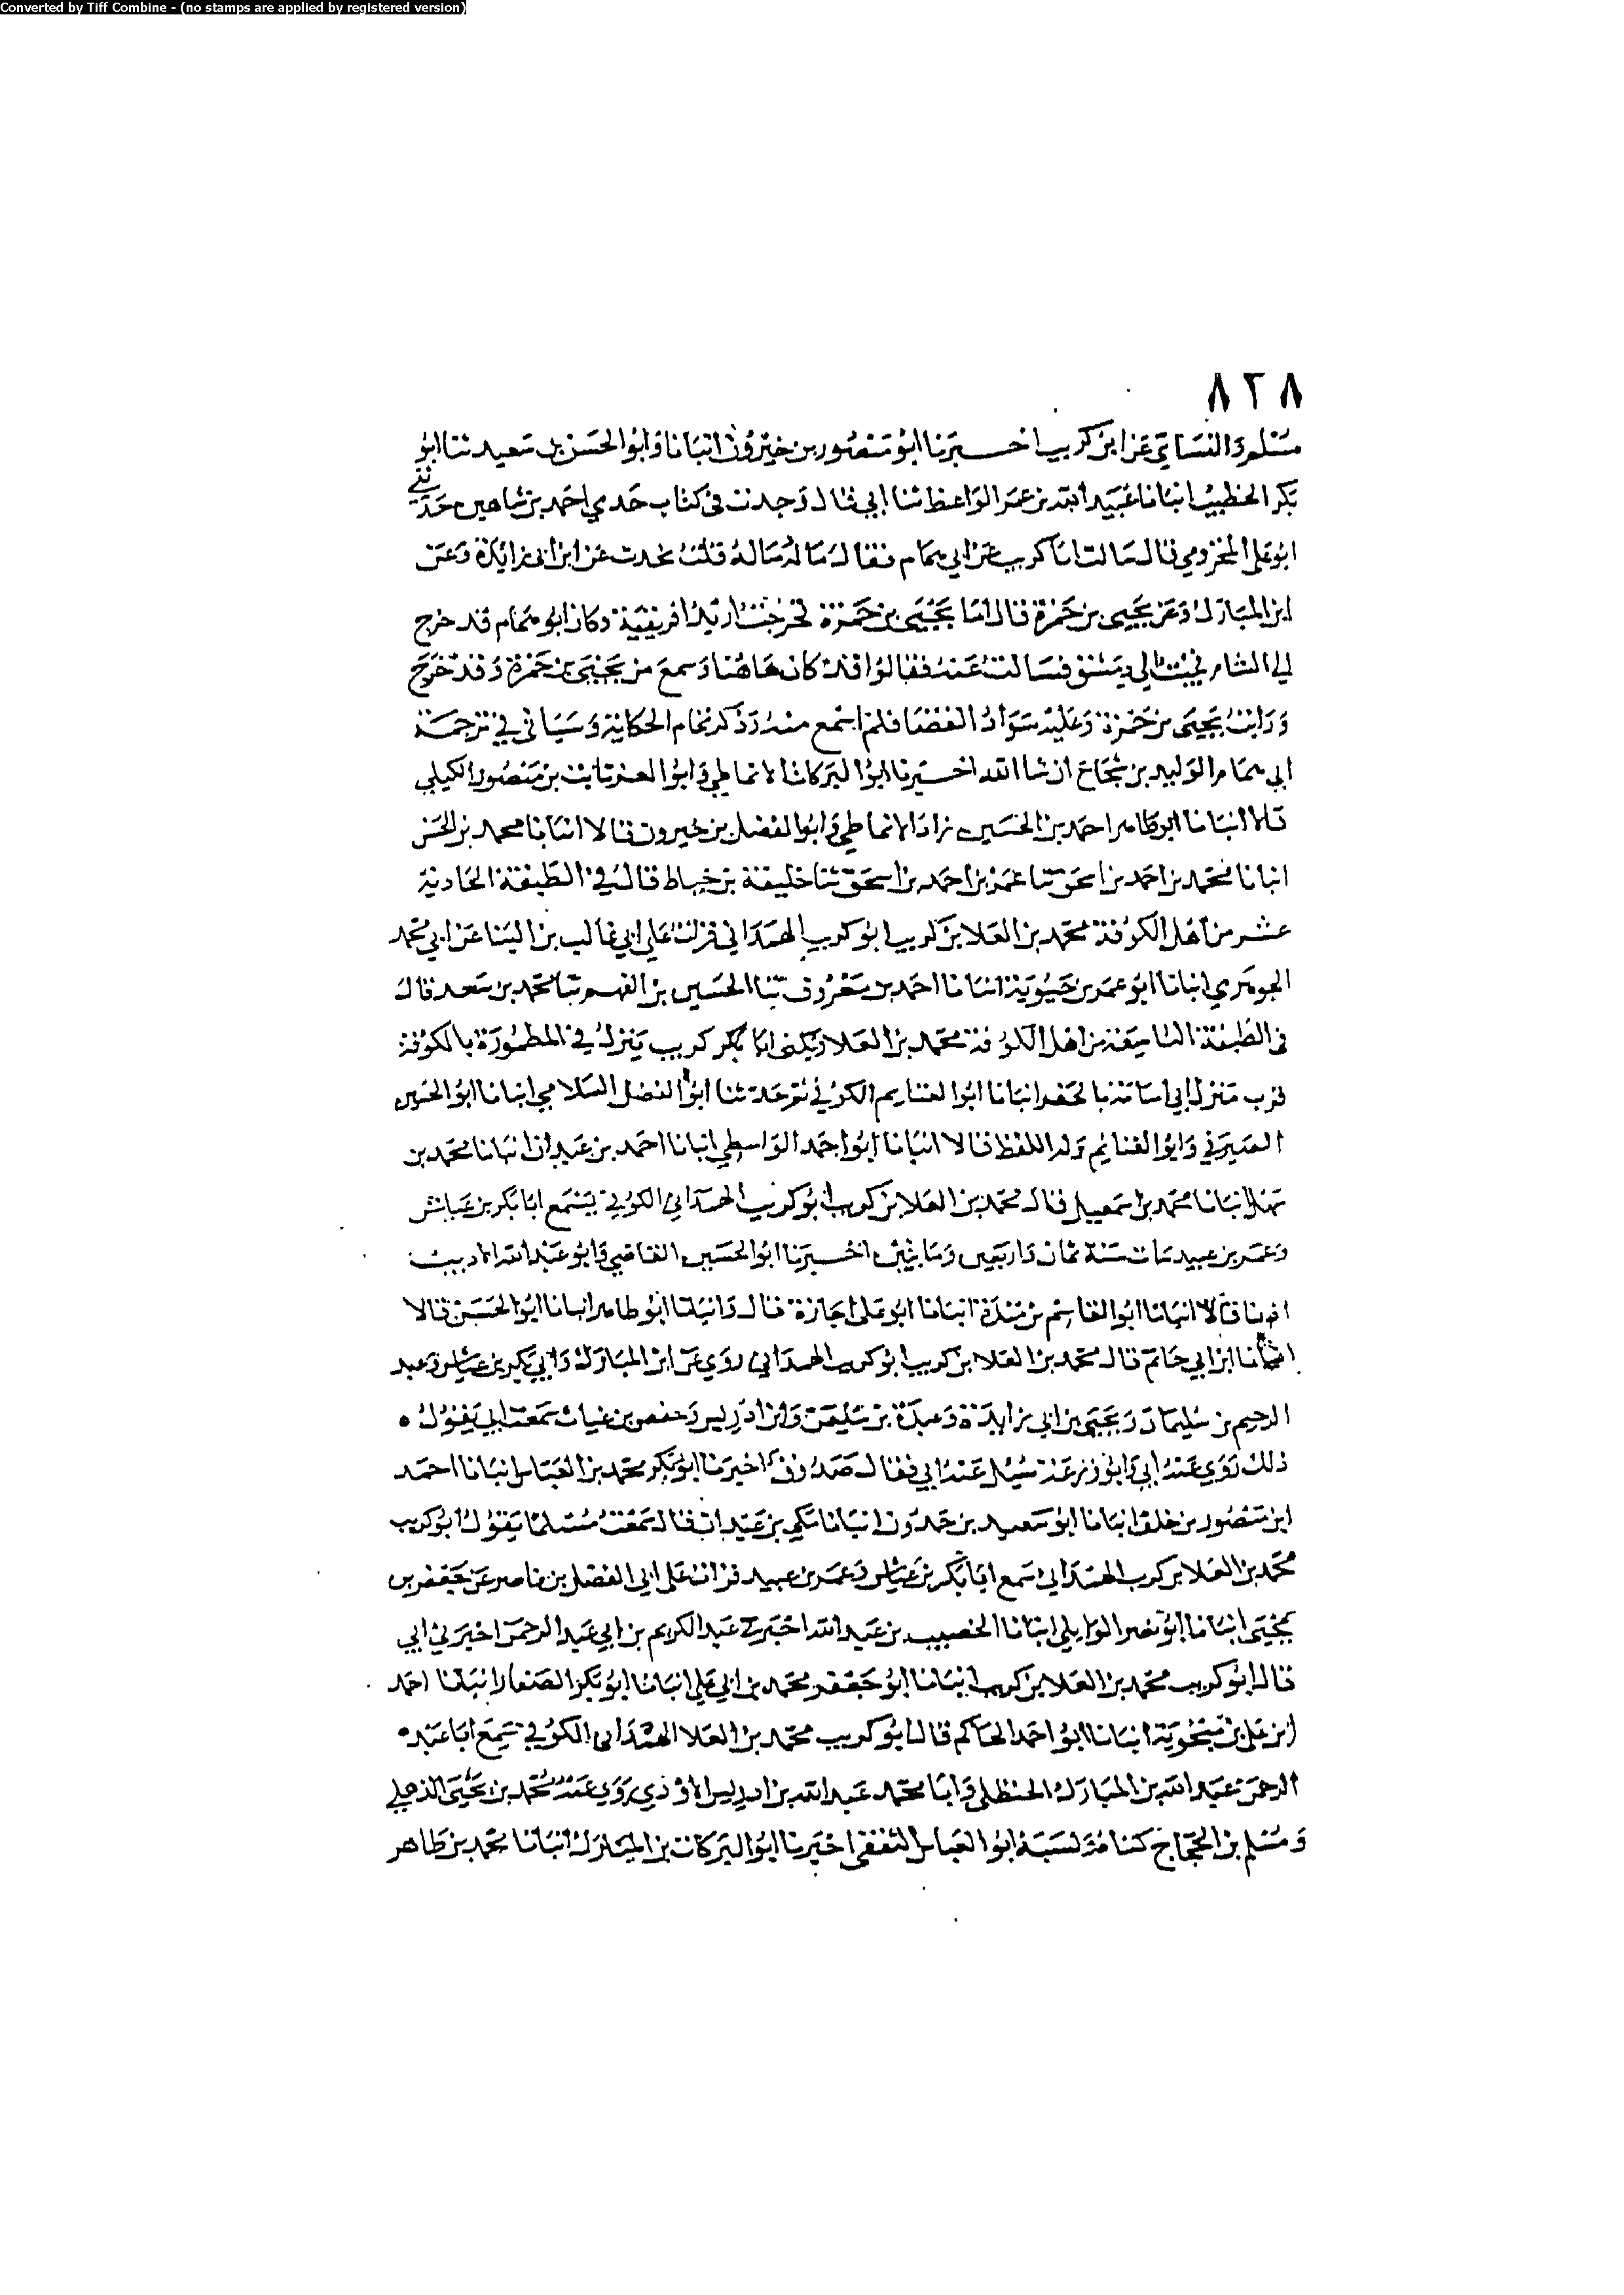 Converted by Tiff Combine - (no stamps are applied by registered version)
٨٢٨
مسلم والنسائي عن ابن كريب اخبرنا ابو منصور بن خيرون انبانا وابو الحسن بن سعيد ثنا ابو
بكر الخطيب انبانا عبيد الله بن عمر الواعظ ثنا ابي قال وجدت في كتاب جدي احمد بن شاهين حدثني
ابو علي المخزومي قال سالت ابا كريب عن ابي همام فقال ما له ماله قلت يحدث عن ابن ابي زائدة وعن
ابن المبارك وعن يحيى بن حمزة قال اما يحيى بن حمزة فخرجت اريد افريقية وكان ابو همام قد خرج
الى الشام فجئت الى دمشق فسالت عنه فقالوا قد كان هاهنا وسمع من يحيى بن حمزة وقد خرج
ورايت يحيى بن حمزة وعليه سواد القضا فلم اسمع منه وذكر تمام الحكاية وسياتي في ترجمة
ابي همام الوليد بن شجاع ان شا الله اخبرنا ابو البركات الانماطي وابو العز ثابت بن منصور الكيلي
قالا انبانا ابو طاهر احمد بن الحسين زاد الانماطي وابو الفضل بن خيرون قالا انبانا محمد بن الحسن
انبانا محمد بن احمد بن اسحق ثنا عمر بن احمد بن اسحق ثنا خليفة بن خياط قال في الطبقة الحادية
عشر من اهل الكوفة محمد بن العلا بن كريب ابو كريب الهمداني قرات على ابي غالب بن البنا عن ابي محمد
الجوهري انبانا ابو عمر بن حيوية انبانا احمد بن معروف ثنا الحسين بن الفهم ثنا محمد بن سعد قال
في الطبقة التاسعة من اهل الكوفة محمد بن العلا ويكنى ابا بكر كريب ينزل في المطمورة بالكوفة
قرب منزل ابي اسامة بالحفر انبانا ابو الغنايم الكوفي ثم حدثنا ابو الفضل السلامي انبانا ابو الحسين
الصيرفي وابو الغنايم وله اللفظ قالا انبانا ابو احمد الواسطي انبانا احمد بن عبدان انبانا محمد بن
سهل انبانا محمد بن اسمعيل قال محمد بن العلا بن كريب ابو كريب الهمداني الكوفي سمع ابا بكر بن عياش
وعمر بن عبيد مات سنة ثمان واربعين ومايتين اخبرنا ابو الحسين القاضي وابو عبد الله الاديب
اذنا قالا انبانا ابو القاسم بن مندة انبانا ابو علي اجازة قال وانبانا ابو طاهر انبانا ابو الحسن قالا
انبانا ابن ابي حاتم قال محمد بن العلا بن كريب ابو كريب الهمداني روى عن ابن المبارك وابي بكر بن عياش وعبد
الرحيم بن سليمان ويحيى بن ابي زايدة وعبدة بن سليمن وابن ادريس وحفص بن غياث سمعت ابي يقول
ذلك روى عنه ابي وابو زرعة سئل عنه ابي فقال صدوق اخبرنا ابو بكر محمد بن العباس انبانا احمد
ابن منصور بن خلف انبانا ابو سعيد بن حمدون انبانا مكي بن عبدان قال سمعت مسلما يقول ابو كريب
محمد بن العلا بن كريب الهمداني سمع ابا بكر بن عياش وعمر بن عبيد قرات على ابي الفضل بن ناصر عن جعفر بن
يحيى انبانا ابو نصر الوايلي انبانا الخصيب بن عبد الله اخبرني عبد الكريم بن ابي عبد الرحمن اخبرني ابي
قال ابو كريب محمد بن العلا بن كريب انبانا ابو جعفر محمد بن ابي علي انبانا ابو بكر الصفار انبانا احمد
ابن علي بن منجوية انبانا ابو احمد الحاكم قال ابو كريب محمد بن العلا الهمداني الكوفي سمع ابا عبد
الرحمن عبد الله بن المبارك الحنظلي وابا محمد عبد الله بن ادريس الاودي روى عنه محمد بن يحيى الذهلي
ومسلم بن الحجاج كناه نسبه ابو العباس الثقفي اخبرنا ابو البركات بن المبارك انبانا محمد بن طاهر